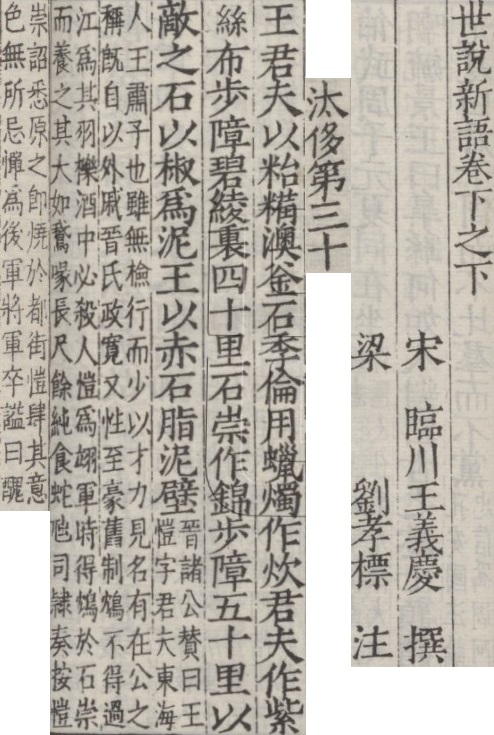 世說新語卷下之下
宋 臨川王義慶 撰
梁 劉孝標 注
汰侈第三十
王君夫以𥹋糒澳釜石季倫用蠟燭作炊君夫作紫
絲布步障碧綾裏四十里石崇作錦步障五十里以
敵之石以椒爲泥王以赤石脂泥壁
晉諸公贊曰王
愷字君夫東海
人王肅子也雖無檢行而少以才力見名有在公之
稱旣自以外戚晉氏政寬又性至豪舊制鴆不得過
江爲其羽櫟酒中必殺人愷爲翊軍時得鴆於石崇
而養之其大如鵞喙長尺餘純食蛇虺司隸奏按愷
崇詔悉原之即燒於都街愷肆其意
色無所忌憚爲後軍將軍卒謚曰醜